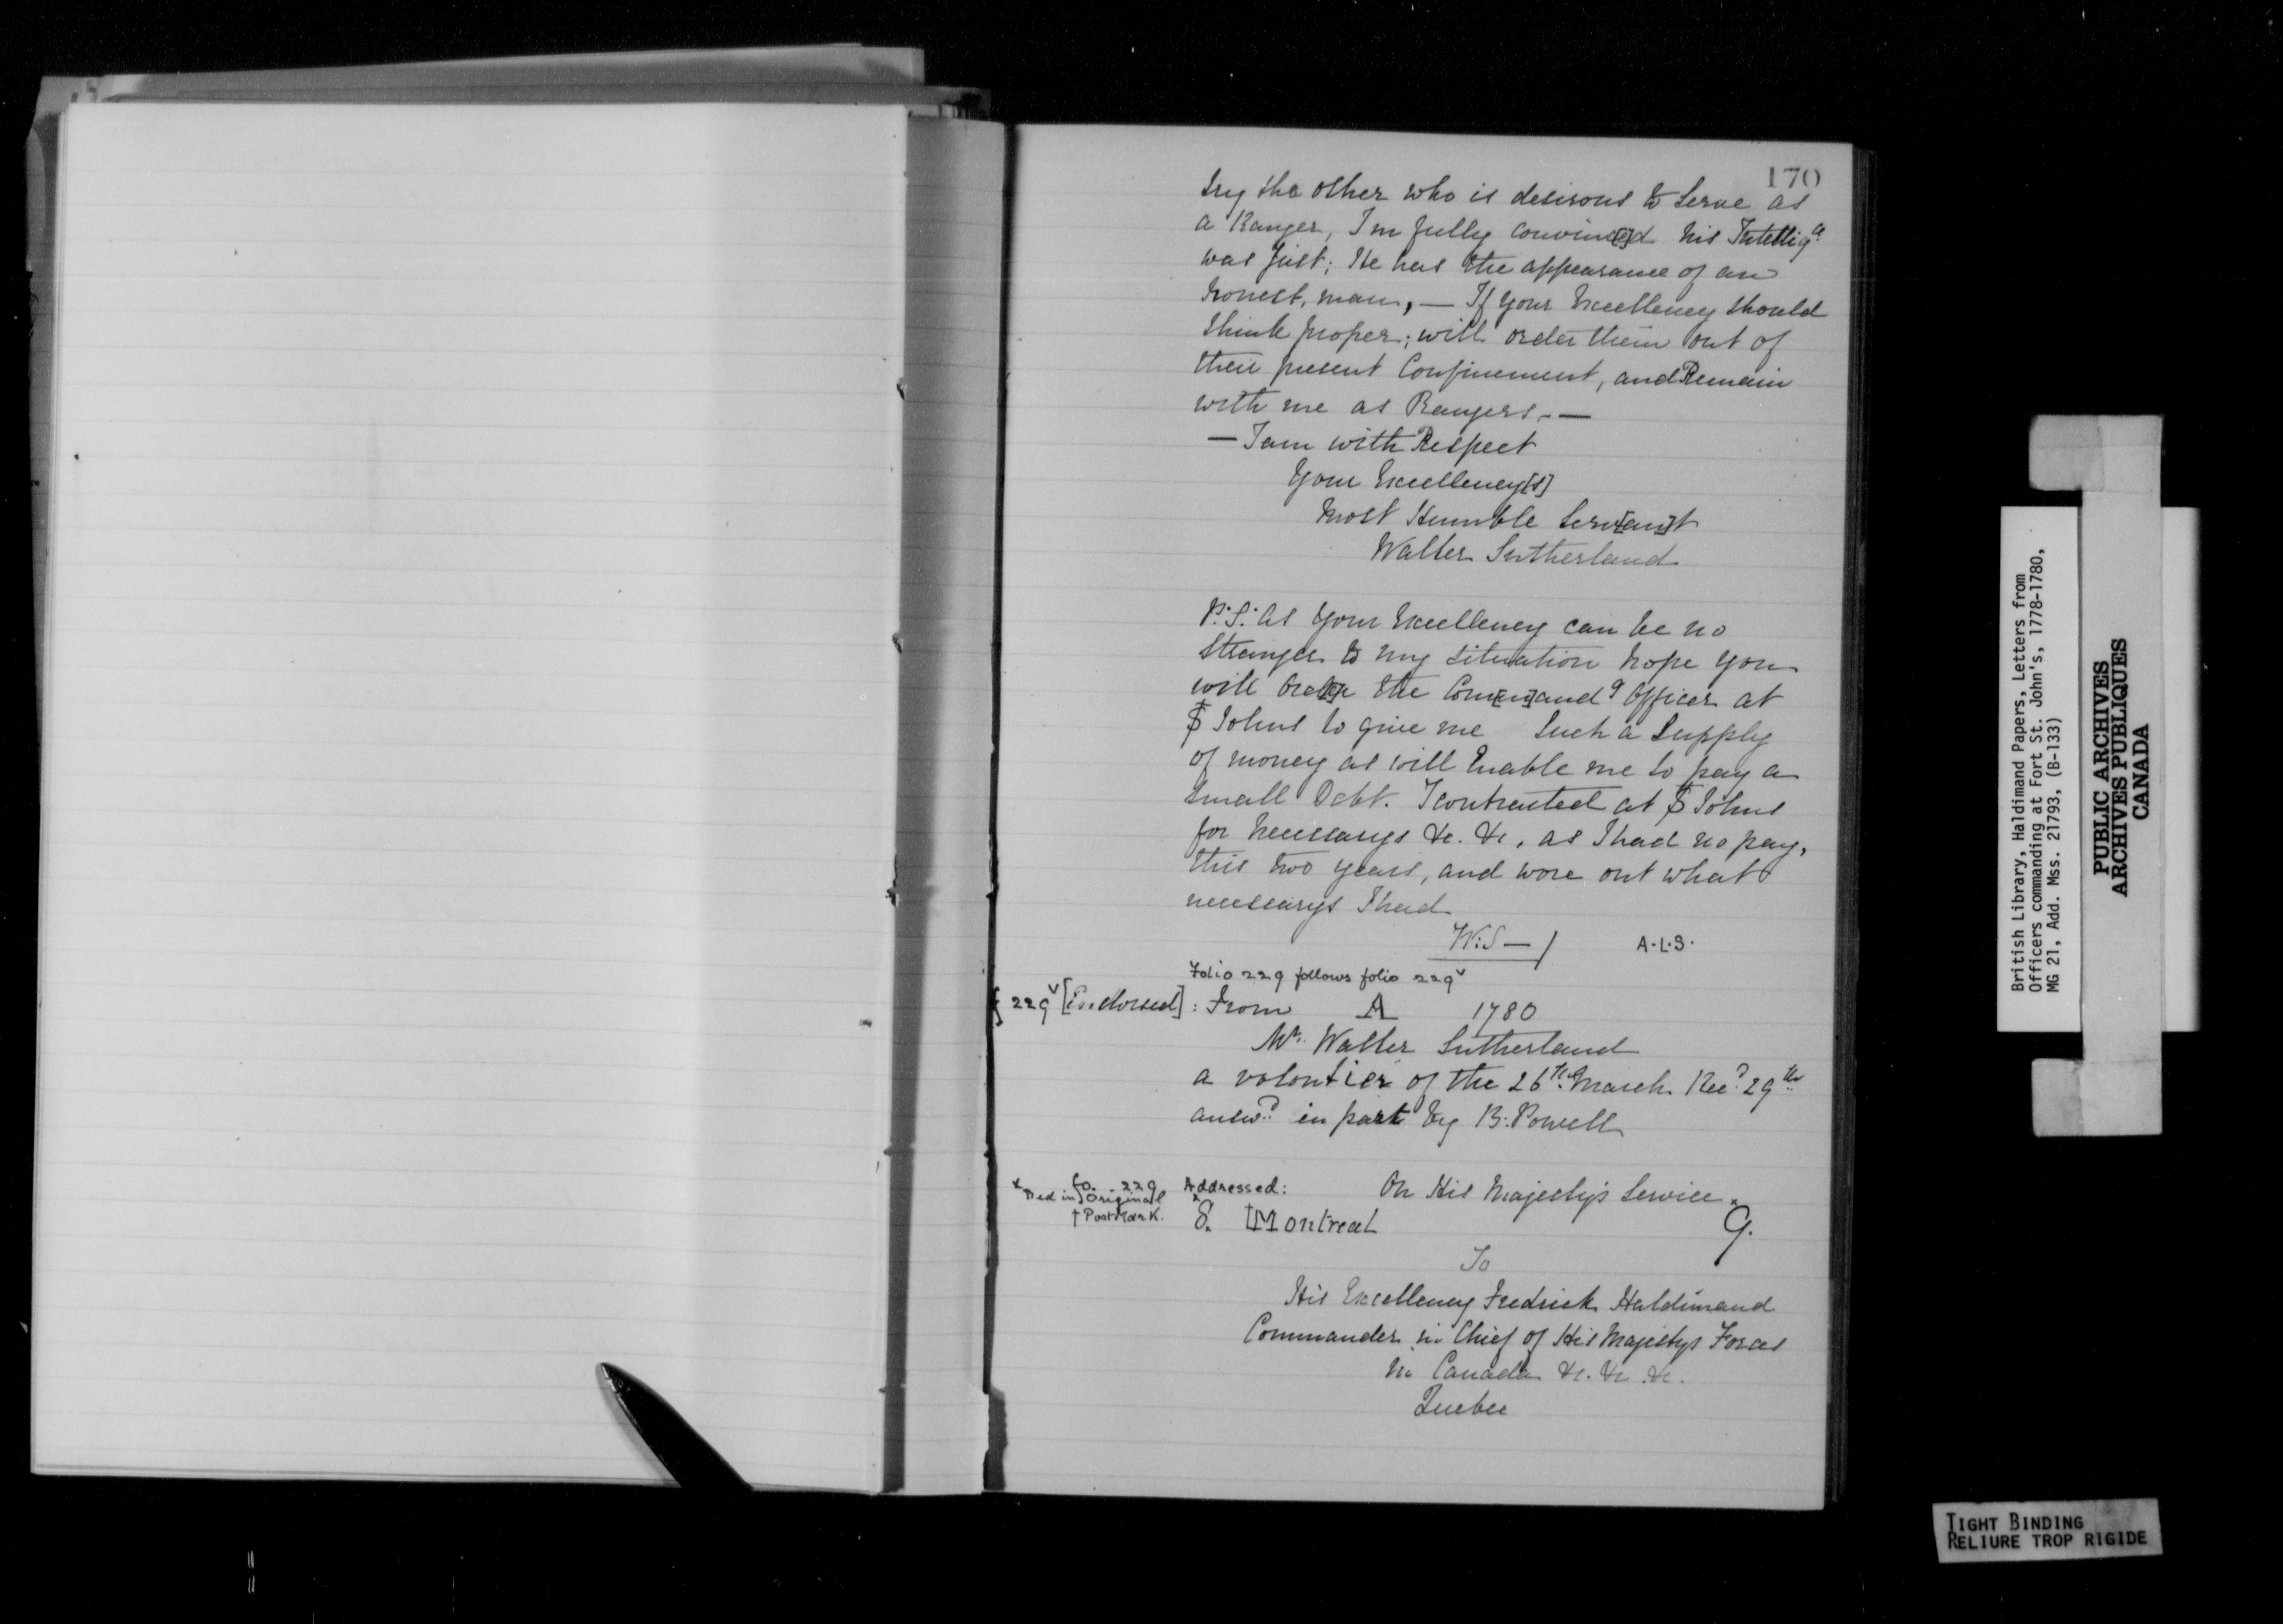 170
try the other who is desirous to Serve as
a Ranger, I'm fully convin[ce]d his Intellig.ce
was Just; He has the appearance of an
honest, man, — If your Excellency should
think proper; will order them out of
their present Confinement, and Remain
with me as Rangers. —
— I am with Respect
Your Excellency[s]
Most Humble Serv[an]t
Walter Sutherland
P:S: As your Excellency can be no
Stranger to my situation hope you
will ord[e]r the Com[m]and.g Officer at
St Johns to give me Such a Supply
of money as will Enable me to pay a
small Debt. I contracted at St Johns
for Necessarys &c. &c, as I had no pay,
this two years, and wore out what
necessarys I had
W:S — / A.L.S.
Folio 229 follows folio 229v
229v [Endorsed]: From A 1780
Mr. Walter Sutherland
a volontier of the 26th March Recd. 29th
answd. in part by B: Powell
fo. 229 Addressed: On His Majestys Service
x Red in Original
† Post Mark. 8. Montreal 9.
To
His Excellency Fredrick Haldimand
Commander in Chief of His Majestys Forces
in Canada &c. &c. &c.
Quebec
British Library, Haldimand Papers, Letters from
Officers commanding at Fort St. John's, 1778-1780,
MG 21, Add. Mss. 21793, (B-133)
PUBLIC ARCHIVES
ARCHIVES PUBLIQUES
CANADA
TIGHT BINDING
RELIURE TROP RIGIDE